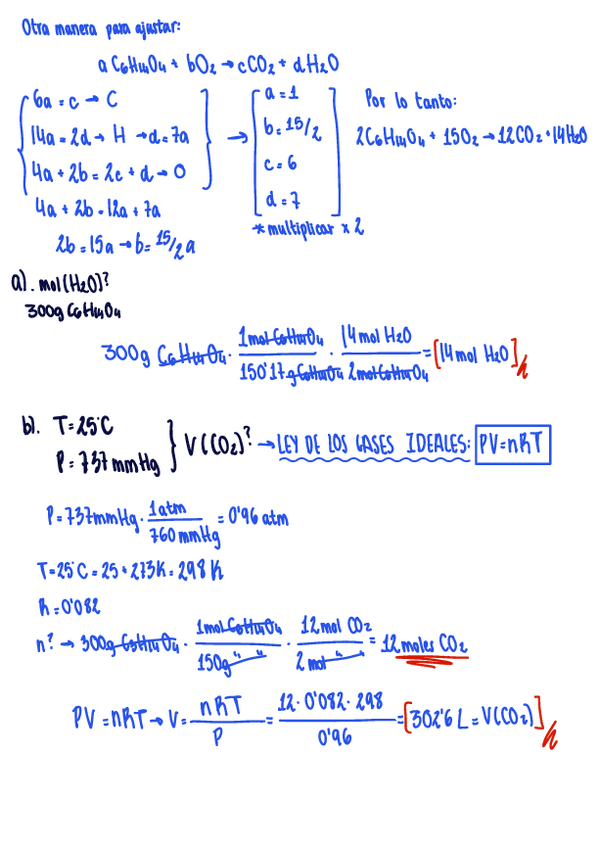 Otra manera para ajustar:
a C6H14O4 + bO2 → cCO2 + dH2O
6a = c → C
14a = 2d → H → d = 7a
4a + 2b = 2c + d → O
4a + 2b = 12a + 7a
2b = 15a → b = 15/2 a
→ a = 1
b = 15/2
c = 6
d = 7
* multiplicar x 2
Por lo tanto:
2C6H14O4 + 15O2 → 12CO2 + 14H2O
a). mol (H2O)?
300g C6H14O4
300g C6H14O4 · 1mol C6H14O4 / 150'17g C6H14O4 · 14 mol H2O / 2mol C6H14O4 = [14 mol H2O]
b). T = 25°C
P = 737 mmHg } V(CO2)? → LEY DE LOS GASES IDEALES: PV=nRT
P = 737mmHg · 1atm / 760 mmHg = 0'96 atm
T = 25°C = 25 + 273K = 298 K
R = 0'082
n? → 300g C6H14O4 · 1mol C6H14O4 / 150g " " · 12 mol CO2 / 2 mol " = 12 moles CO2
PV = nRT → V = nRT / P = 12 · 0'082 · 298 / 0'96 = [302'6 L = V(CO2)]